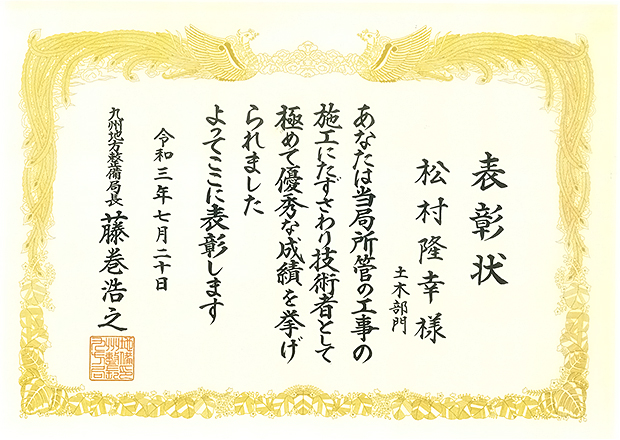 表彰状
松村隆幸様
土木部門
あなたは当局所管の工事の
施工にたずさわり技術者として
極めて優秀な成績を挙げ
られました
よってここに表彰します
令和三年七月二十日
九州地方整備局長 藤巻浩之